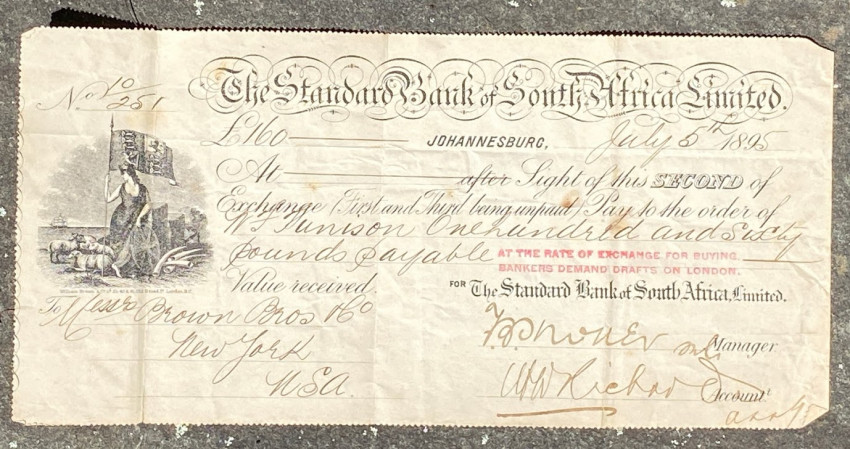 No 10/251
The Standard Bank of South Africa Limited.
£160 JOHANNESBURG, July 5th 1895
At after Sight of this SECOND of
Exchange (First and Third being unpaid) Pay to the order of
One hundred and Sixty
pounds payable AT THE RATE OF EXCHANGE FOR BUYING
BANKERS DEMAND DRAFTS ON LONDON.
Value received.
FOR The Standard Bank of South Africa, Limited.
To Messrs Brown Bros & Co
Manager
New York
USA.
Account